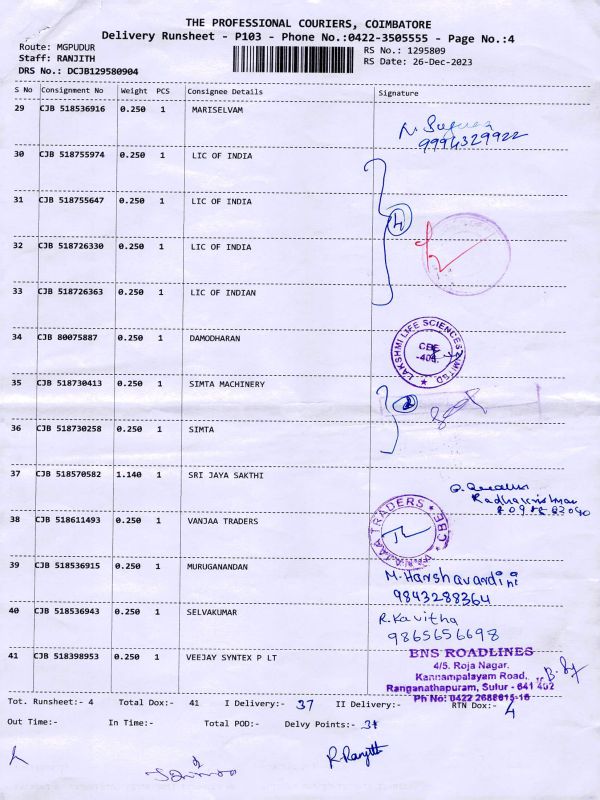 THE PROFESSIONAL COURIERS, COIMBATORE
Delivery Runsheet - P103 - Phone No.:0422-3505555 - Page No.:4
Route: MGPUDUR
RS No.: 1295809
Staff: RANJITH
RS Date: 26-Dec-2023
DRS No.: DCJB129580904
S No Consignment No Weight PCS Consignee Details Signature
29 CJB 518536916 0.250 1 MARISELVAM
9994329922
30 CJB 518755974 0.250 1 LIC OF INDIA
31 CJB 518755647 0.250 1 LIC OF INDIA
4
32 CJB 518726330 0.250 1 LIC OF INDIA
33 CJB 518726363 0.250 1 LIC OF INDIAN
34 CJB 80075887 0.250 1 DAMODHARAN
LAKSHMI LIFE SCIENCES LIMITED
CBE
35 CJB 518730413 0.250 1 SIMTA MACHINERY
2
36 CJB 518730258 0.250 1 SIMTA
37 CJB 518570582 1.140 1 SRI JAYA SAKTHI
Radhakrishnan
38 CJB 518611493 0.250 1 VANJAA TRADERS
VANJAA TRADERS CBE
39 CJB 518536915 0.250 1 MURUGANANDAN
M.Harshavardini
9843288364
40 CJB 518536943 0.250 1 SELVAKUMAR
R.Kavitha
9865656698
41 CJB 518398953 0.250 1 VEEJAY SYNTEX P LT
BNS ROADLINES
4/5. Roja Nagar.
Kannampalayam Road,
Ranganathapuram, Sulur - 641 402
Ph No: 0422 2688615-16
Tot. Runsheet:- 4 Total Dox:- 41 I Delivery:- 37 II Delivery:- RTN Dox:- 4
Out Time:- In Time:- Total POD:- Delvy Points:- 31
R.Ranjith